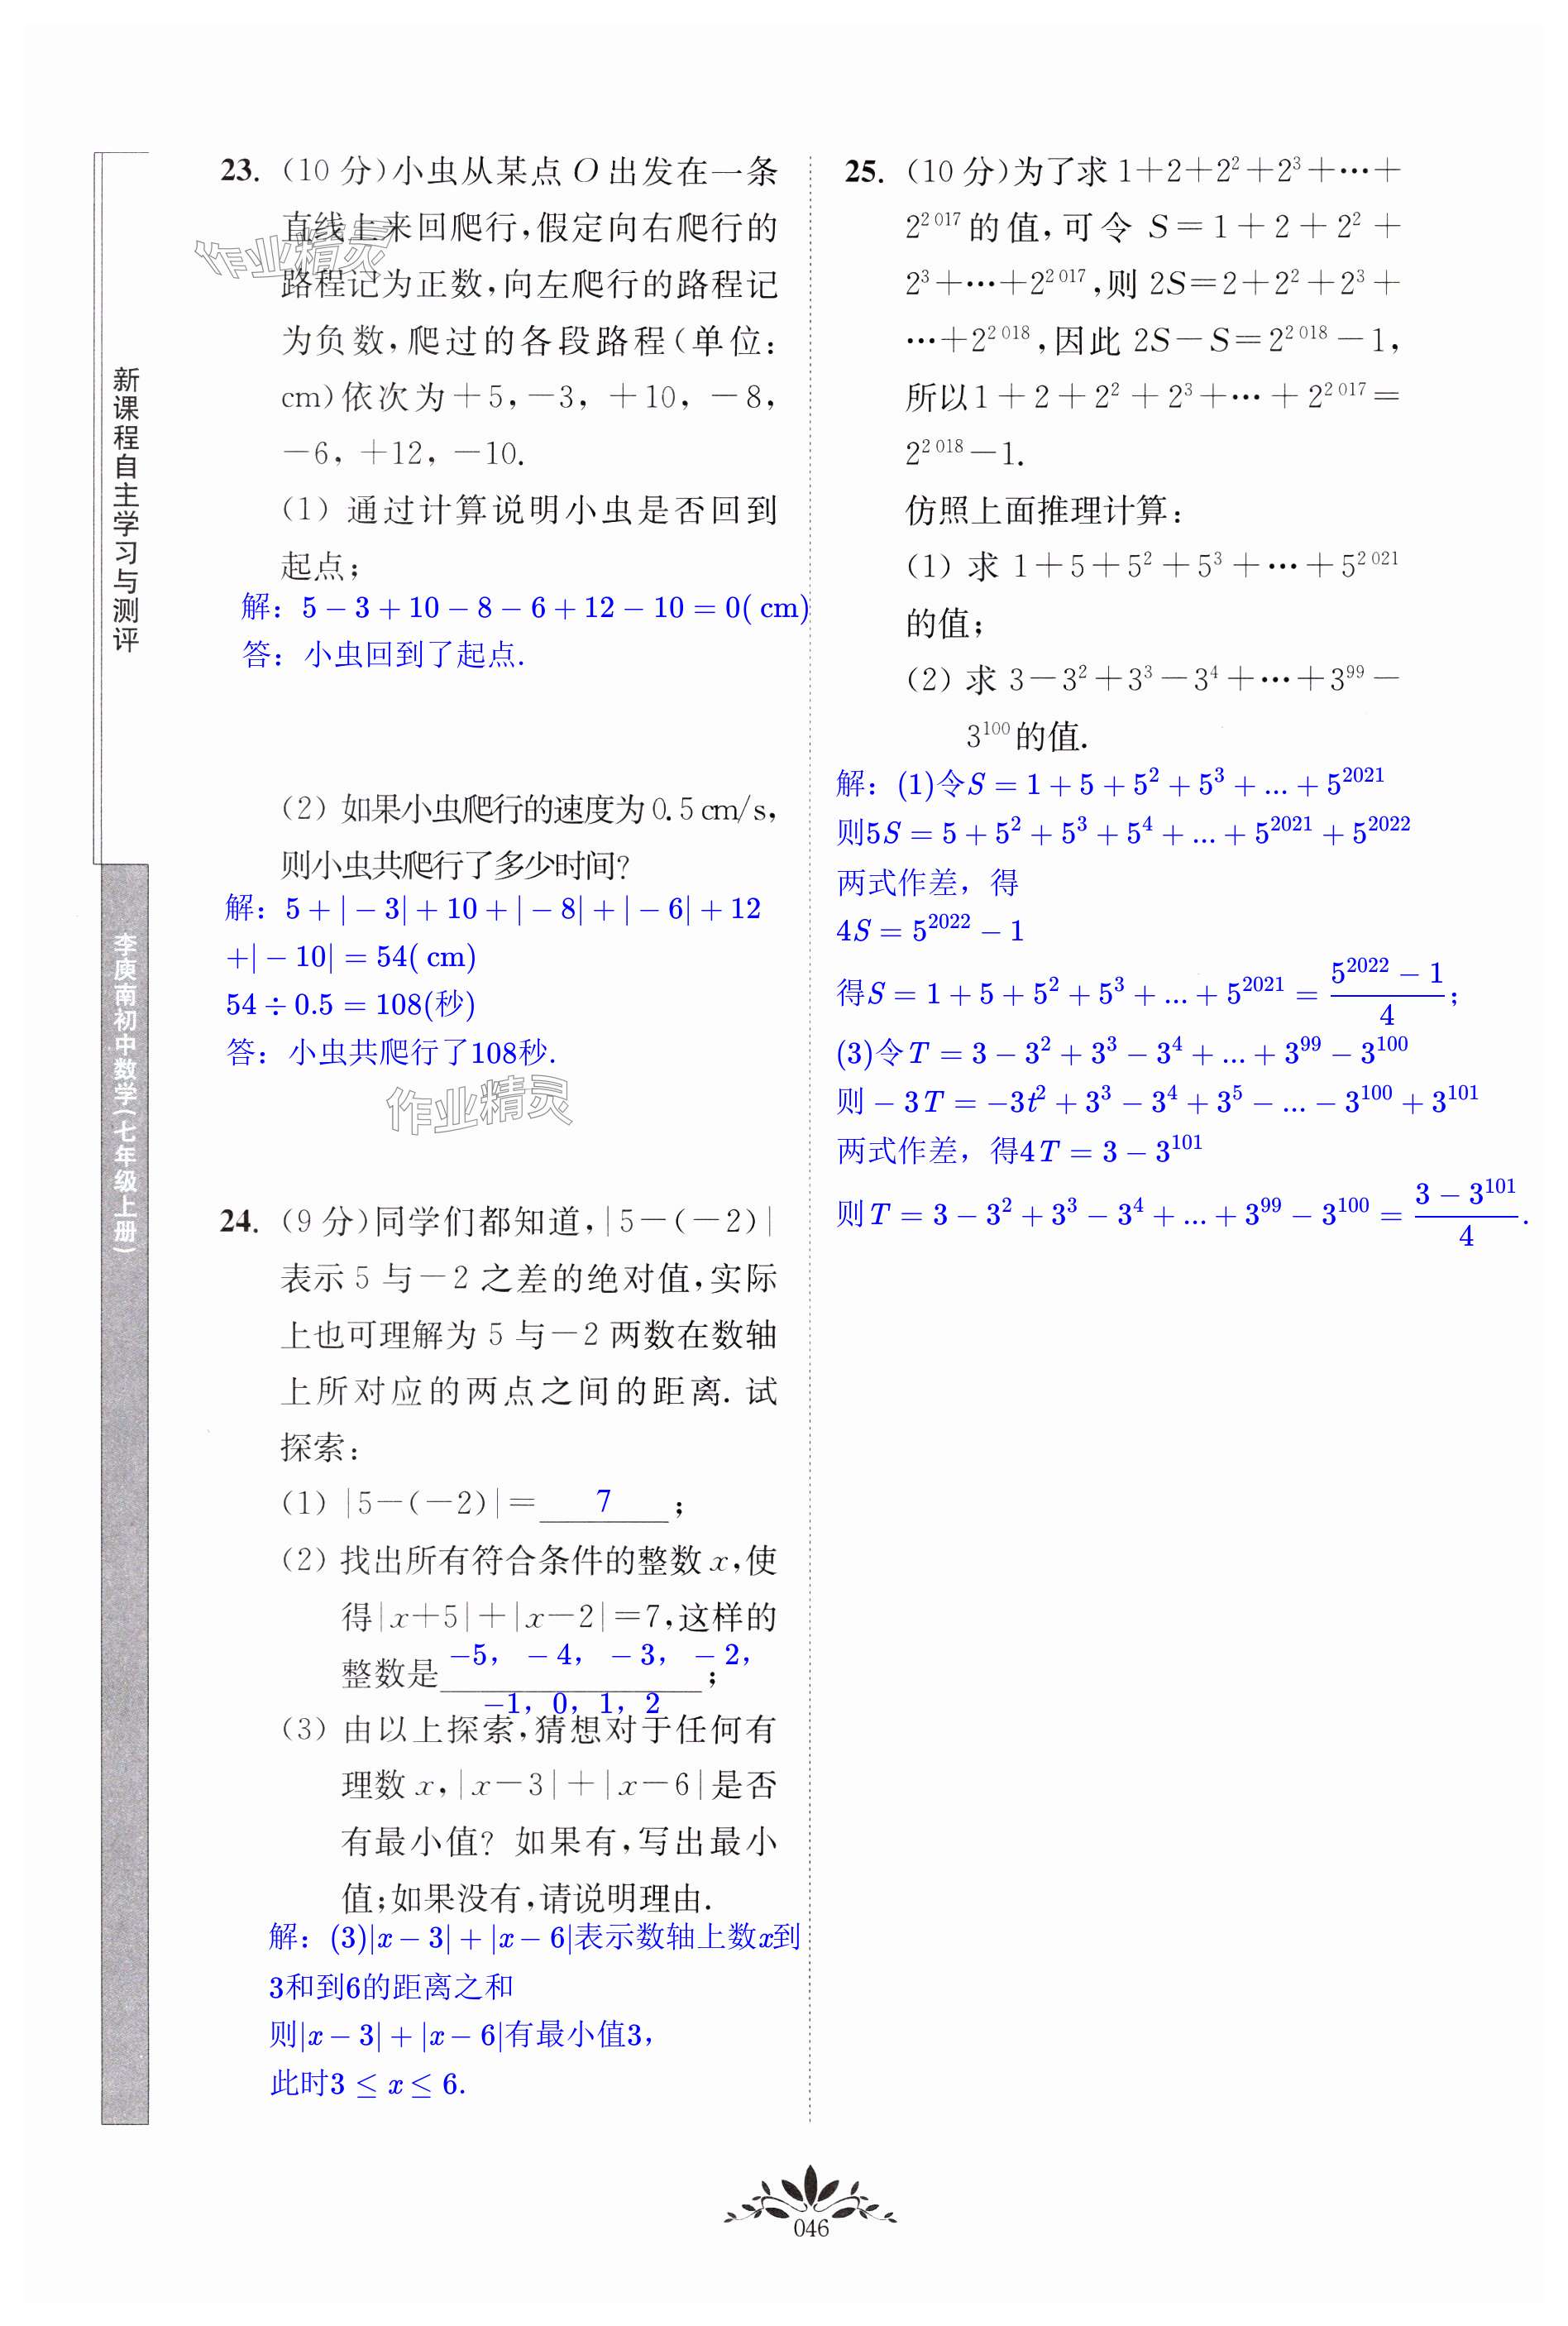 新课程自主学习与测评
李庾南初中数学(七年级上册)
作业精灵
23. (10 分)小虫从某点 O 出发在一条
直线上来回爬行,假定向右爬行的
路程记为正数,向左爬行的路程记
为负数,爬过的各段路程(单位:
cm)依次为+5,-3, +10, -8,
-6, +12, -10.
(1) 通过计算说明小虫是否回到
起点;
解: 5 - 3 + 10 - 8 - 6 + 12 - 10 = 0( cm)
答: 小虫回到了起点.
(2) 如果小虫爬行的速度为0.5 cm/s,
则小虫共爬行了多少时间?
解: 5 + | - 3| + 10 + | - 8| + | - 6| + 12
+| - 10| = 54( cm)
54 ÷ 0.5 = 108(秒)
答: 小虫共爬行了108秒.
作业精灵
24. (9 分)同学们都知道,|5-(-2)|
表示 5 与-2 之差的绝对值,实际
上也可理解为 5 与-2 两数在数轴
上所对应的两点之间的距离. 试
探索:
(1) |5-(-2)|= 7 ;
(2) 找出所有符合条件的整数 x,使
得|x+5|+|x-2|=7,这样的
−5, − 4, − 3, − 2,
整数是________;
−1, 0, 1, 2
(3) 由以上探索,猜想对于任何有
理数 x,|x-3|+|x-6|是否
有最小值? 如果有,写出最小
值;如果没有,请说明理由.
解: (3)|x − 3| + |x − 6|表示数轴上数x到
3和到6的距离之和
则|x − 3| + |x − 6|有最小值3,
此时3 ≤ x ≤ 6.
25. (10 分)为了求 1+2+2²+2³+…+
2²⁰¹⁷ 的值,可令 S=1+2+2²+
2³+…+2²⁰¹⁷,则 2S=2+2²+2³+
…+2²⁰¹⁸,因此 2S-S=2²⁰¹⁸-1,
所以1+2+2²+2³+…+2²⁰¹⁷=
2²⁰¹⁸-1.
仿照上面推理计算:
(1) 求 1+5+5²+5³+…+5²⁰²¹
的值;
(2) 求 3-3²+3³-3⁴+…+3⁹⁹-
3¹⁰⁰的值.
解: (1)令S = 1 + 5 + 5² + 5³ + ... + 5²⁰²¹
则5S = 5 + 5² + 5³ + 5⁴ + ... + 5²⁰²¹ + 5²⁰²²
两式作差, 得
4S = 5²⁰²² − 1
得S = 1 + 5 + 5² + 5³ + ... + 5²⁰²¹ = (5²⁰²² − 1)/4;
(3)令T = 3 − 3² + 3³ − 3⁴ + ... + 3⁹⁹ − 3¹⁰⁰
则 − 3T = −3t² + 3³ − 3⁴ + 3⁵ − ... − 3¹⁰⁰ + 3¹⁰¹
两式作差, 得4T = 3 − 3¹⁰¹
则T = 3 − 3² + 3³ − 3⁴ + ... + 3⁹⁹ − 3¹⁰⁰ = (3 − 3¹⁰¹)/4.
046